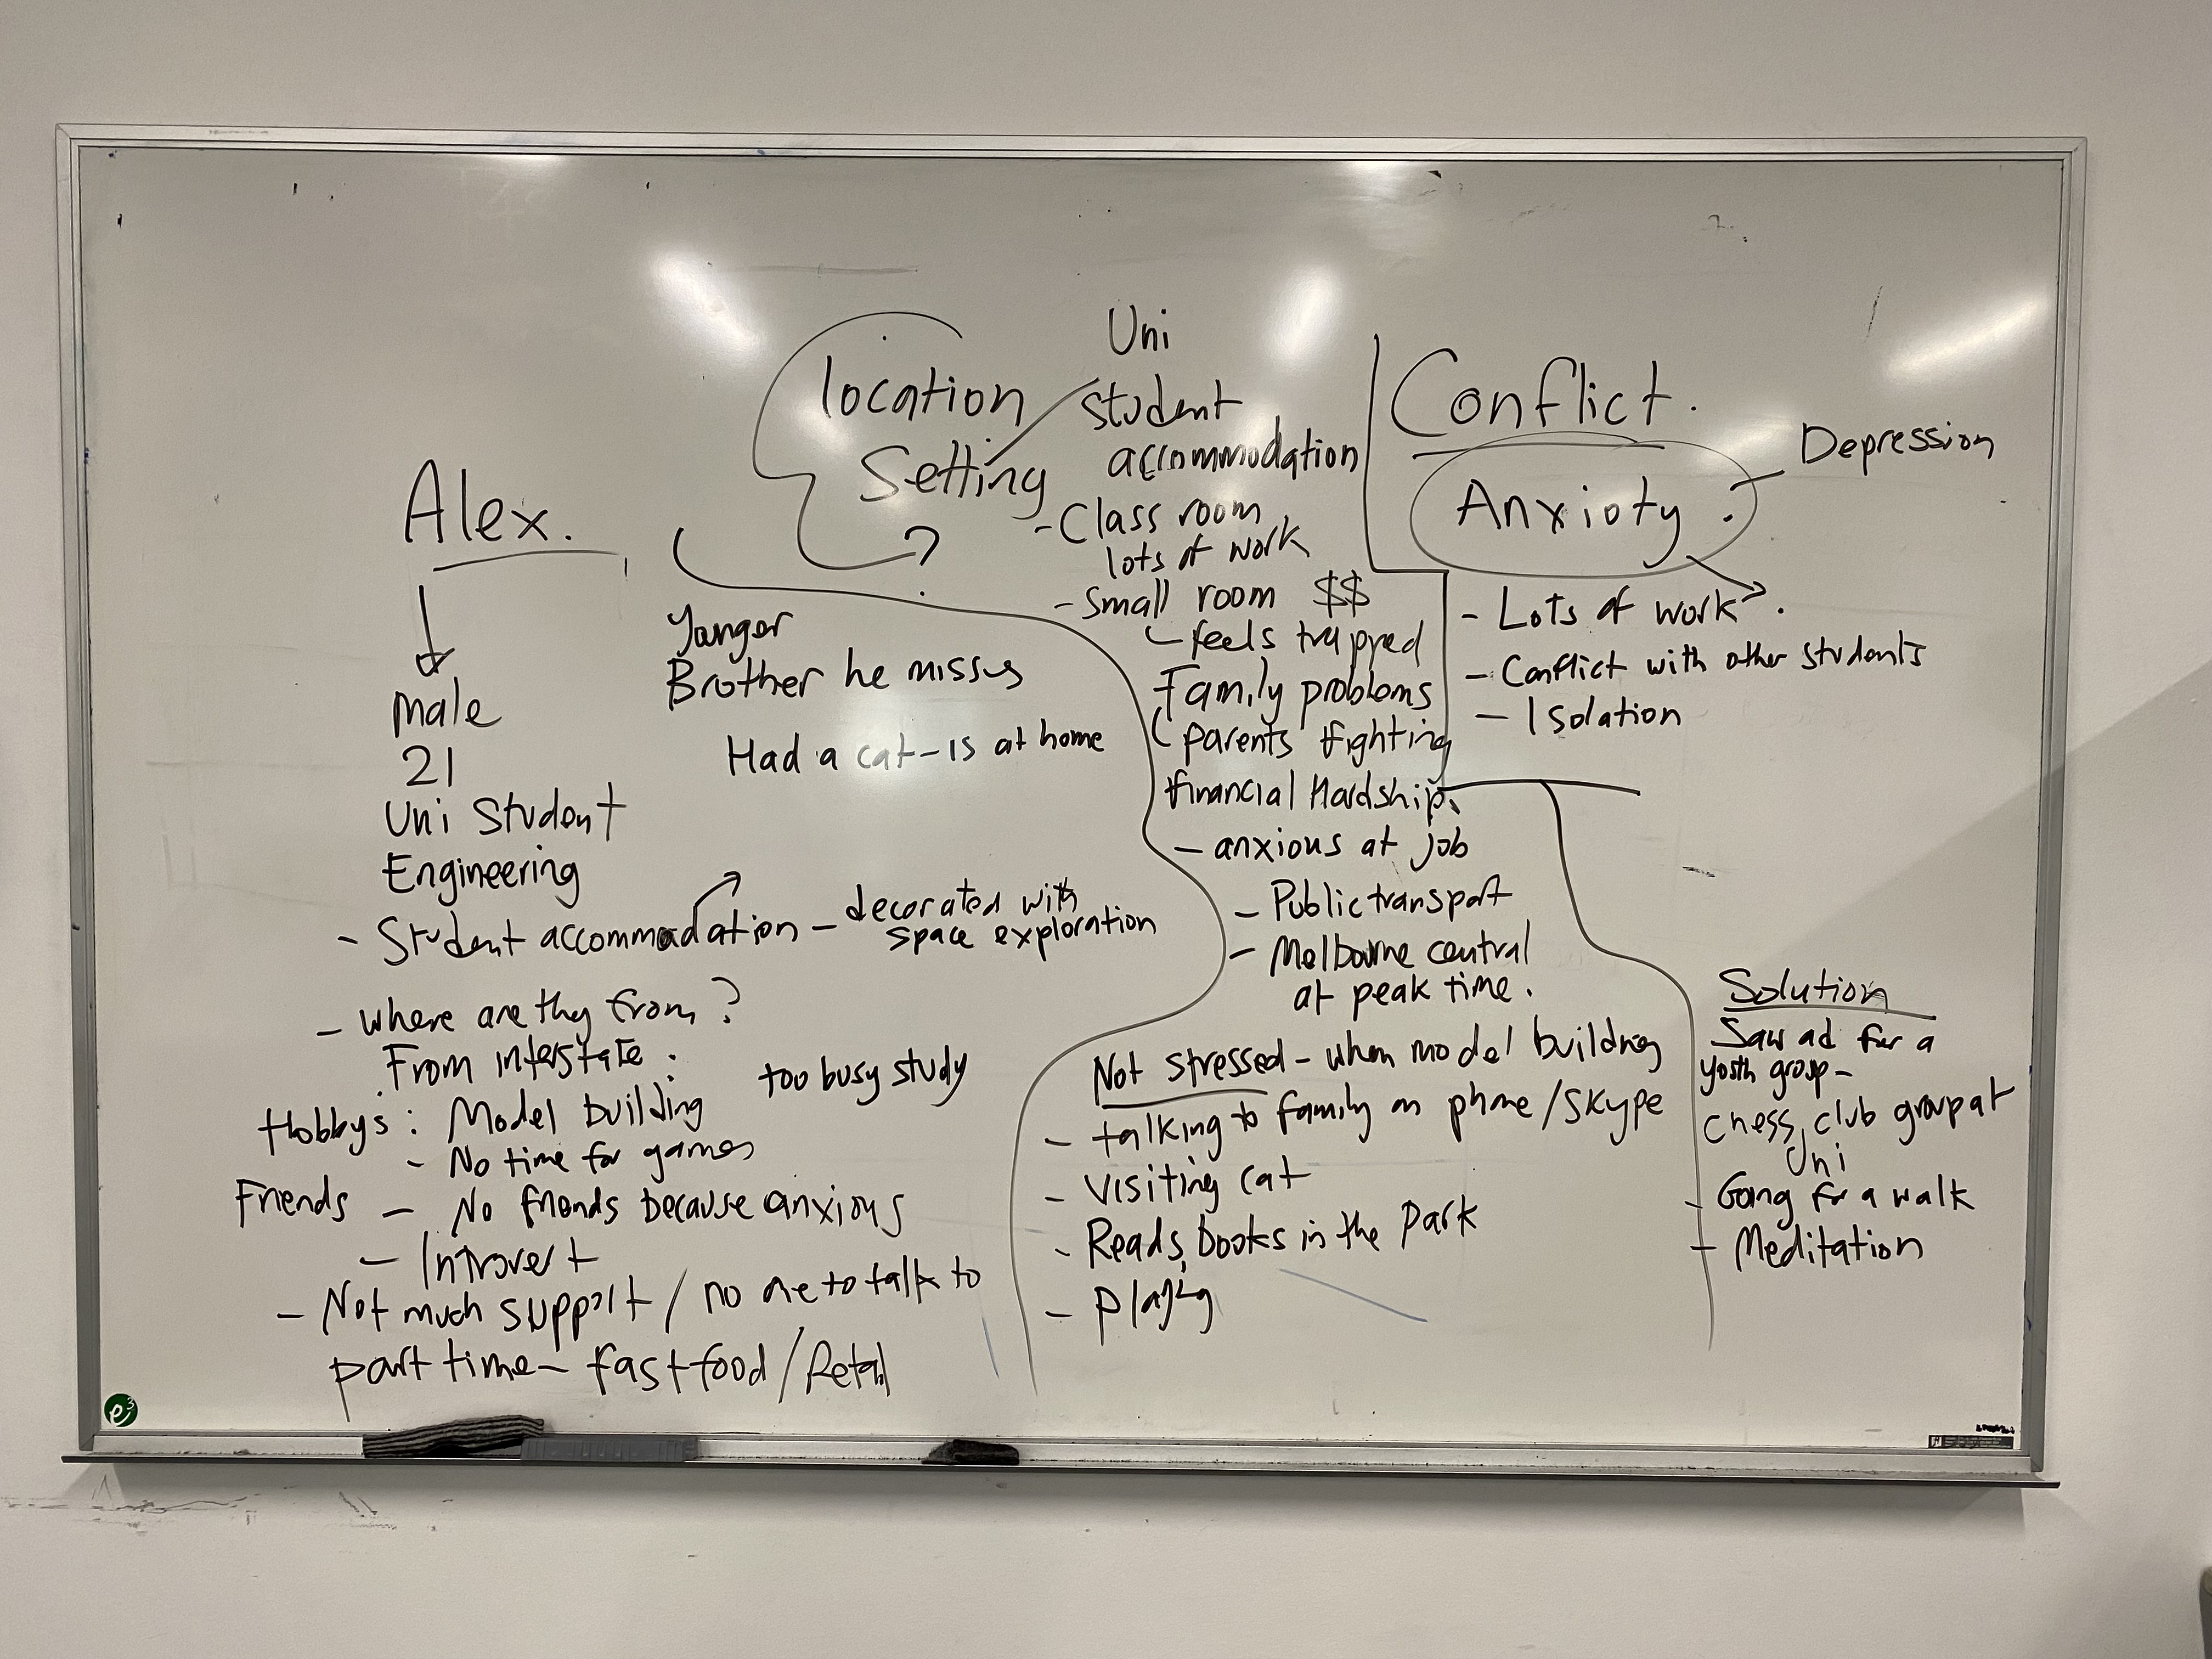 Alex.
Male
21
Uni Student
Engineering
- Student accommodation - decorated with
space exploration
- where are thy from?
From interstate.
Hobbys: Model building
too busy study
- No time for games
Friends - No friends because anxious
- Introvert
- Not much support / no one to talk to
part time - fast food / Retail
Yonger
Brother he misses
Had a cat - is at home
location
Setting
?
Uni
student
accommodation
- Class room
lots of work
- Small room $$
feels trapped
Family problems
parents fighting
financial Hardship.
- anxious at job
- Public transport
- Melbourne central
at peak time.
Not stressed - when model building
- talking to family on phone/SKype
- visiting cat
- Reads books in the Park
- Playing
Conflict.
Anxioty.
Depression
- Lots of work.
- Conflict with other students
- Isolation
Solution
Saw ad for a
youth group -
chess club group at
Uni
- Going for a walk
- Meditation
e3